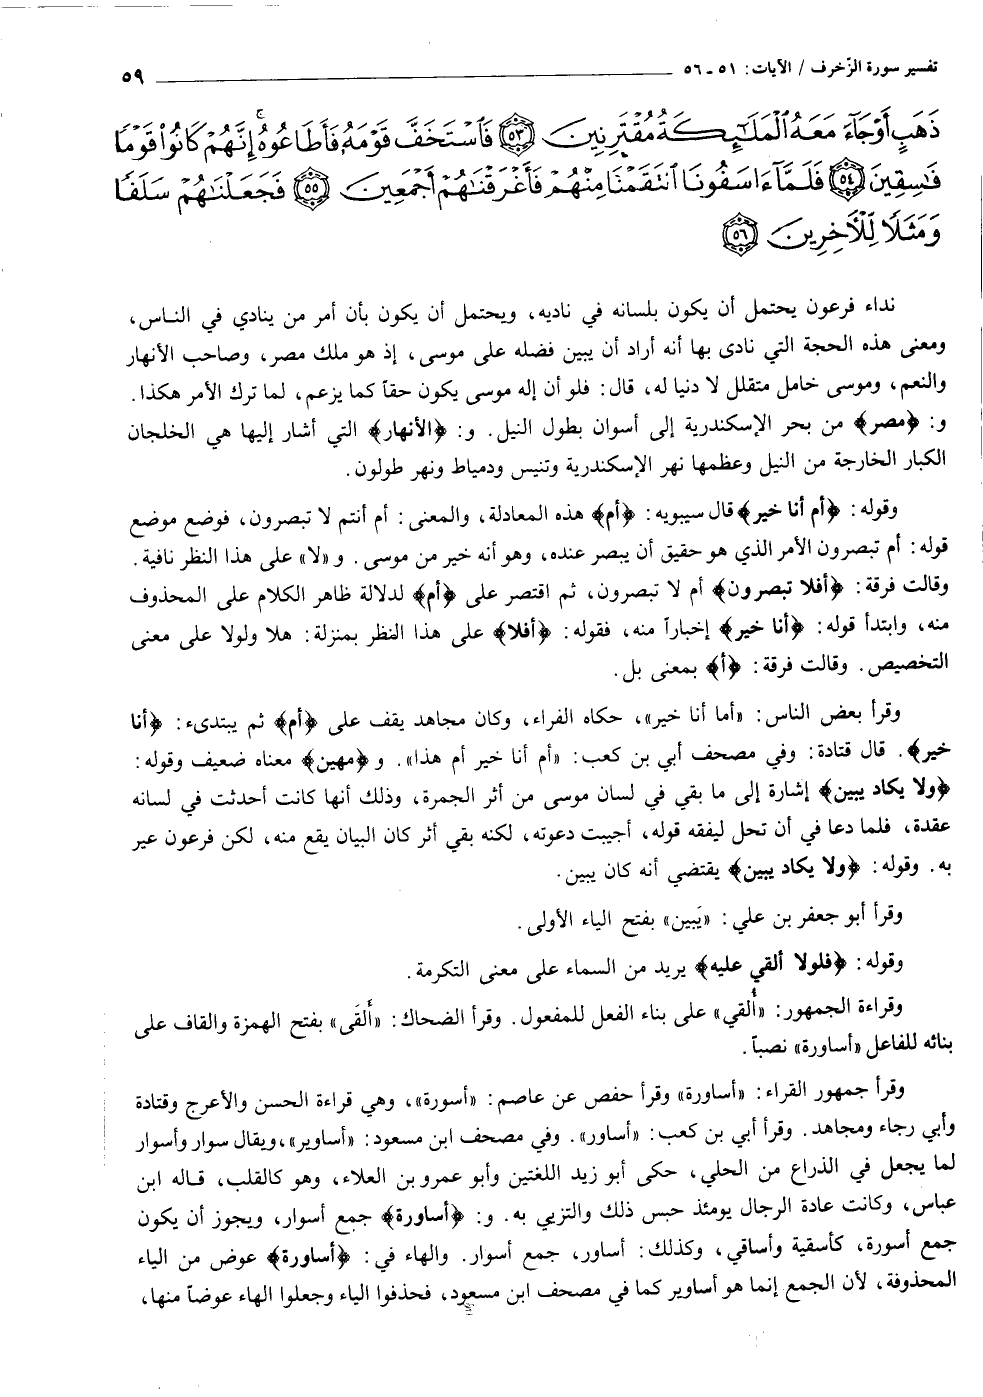 تفسير سورة الزّخرف / الآيات: ٥١ ـ ٥٦ ٥٩
ذَهَبٍ أَوْ جَآءَ مَعَهُ الْمَلَٰٓئِكَةُ مُقْتَرِنِينَ ٥٣ فَاسْتَخَفَّ قَوْمَهُ فَأَطَاعُوهُ إِنَّهُمْ كَانُوا۟ قَوْمًا
فَٰسِقِينَ ٥٤ فَلَمَّآ ءَاسَفُونَا انتَقَمْنَا مِنْهُمْ فَأَغْرَقْنَٰهُمْ أَجْمَعِينَ ٥٥ فَجَعَلْنَٰهُمْ سَلَفًا
وَمَثَلًا لِّلْآخِرِينَ ٥٦
نداء فرعون يحتمل أن يكون بلسانه في ناديه، ويحتمل أن يكون بأن أمر من ينادي في الناس،
ومعنى هذه الحجة التي نادى بها أنه أراد أن يبين فضله على موسى، إذ هو ملك مصر، وصاحب الأنهار
والنعم، وموسى خامل متقلل لا دنيا له، قال: فلو أن إله موسى يكون حقاً كما يزعم، لما ترك الأمر هكذا.
و: ﴿مصر﴾ من بحر الإسكندرية إلى أسوان بطول النيل. و: ﴿الأنهار﴾ التي أشار إليها هي الخلجان
الكبار الخارجة من النيل وعظمها نهر الإسكندرية وتنيس ودمياط ونهر طولون.
وقوله: ﴿أم أنا خير﴾ قال سيبويه: ﴿أم﴾ هذه المعادلة، والمعنى: أم أنتم لا تبصرون، فوضع موضع
قوله: أم تبصرون الأمر الذي هو حقيق أن يبصر عنده، وهو أنه خير من موسى. و «لا» على هذا النظر نافية.
وقالت فرقة: ﴿أفلا تبصرون﴾ أم لا تبصرون، ثم اقتصر على ﴿أم﴾ لدلالة ظاهر الكلام على المحذوف
منه، وابتدأ قوله: ﴿أنا خير﴾ إخباراً منه، فقوله: ﴿أفلا﴾ على هذا النظر بمنزلة: هلا ولولا على معنى
التخصيص. وقالت فرقة: ﴿أ﴾ بمعنى بل.
وقرأ بعض الناس: «أما أنا خير»، حكاه الفراء، وكان مجاهد يقف على ﴿أم﴾ ثم يبتدىء: ﴿أنا
خير﴾. قال قتادة: وفي مصحف أبي بن كعب: «أم أنا خير أم هذا». و ﴿مهين﴾ معناه ضعيف وقوله:
﴿ولا يكاد يبين﴾ إشارة إلى ما بقي في لسان موسى من أثر الجمرة، وذلك أنها كانت أحدثت في لسانه
عقدة، فلما دعا في أن تحل ليفقه قوله، أجيبت دعوته، لكنه بقي أثر كان البيان يقع منه، لكن فرعون عير
به. وقوله: ﴿ولا يكاد يبين﴾ يقتضي أنه كان يبين.
وقرأ أبو جعفر بن علي: «يَبين» بفتح الياء الأولى.
وقوله: ﴿فلولا ألقي عليه﴾ يريد من السماء على معنى التكرمة.
وقراءة الجمهور: «أُلقي» على بناء الفعل للمفعول. وقرأ الضحاك: «أَلقَى» بفتح الهمزة والقاف على
بنائه للفاعل «أساورة» نصباً.
وقرأ جمهور القراء: «أساورة» وقرأ حفص عن عاصم: «أسورة»، وهي قراءة الحسن والأعرج وقتادة
وأبي رجاء ومجاهد. وقرأ أبي بن كعب: «أساور». وفي مصحف ابن مسعود: «أساوير»، ويقال سوار وأسوار
لما يجعل في الذراع من الحلي، حكى أبو زيد اللغتين وأبو عمرو بن العلاء، وهو كالقلب، قاله ابن
عباس، وكانت عادة الرجال يومئذ حبس ذلك والتزيي به. و: ﴿أساورة﴾ جمع أسوار، ويجوز أن يكون
جمع أسورة، كأسقية وأساقي، وكذلك: أساور، جمع أسوار. والهاء في: ﴿أساورة﴾ عوض من الياء
المحذوفة، لأن الجمع إنما هو أساوير كما في مصحف ابن مسعود، فحذفوا الياء وجعلوا الهاء عوضاً منها،